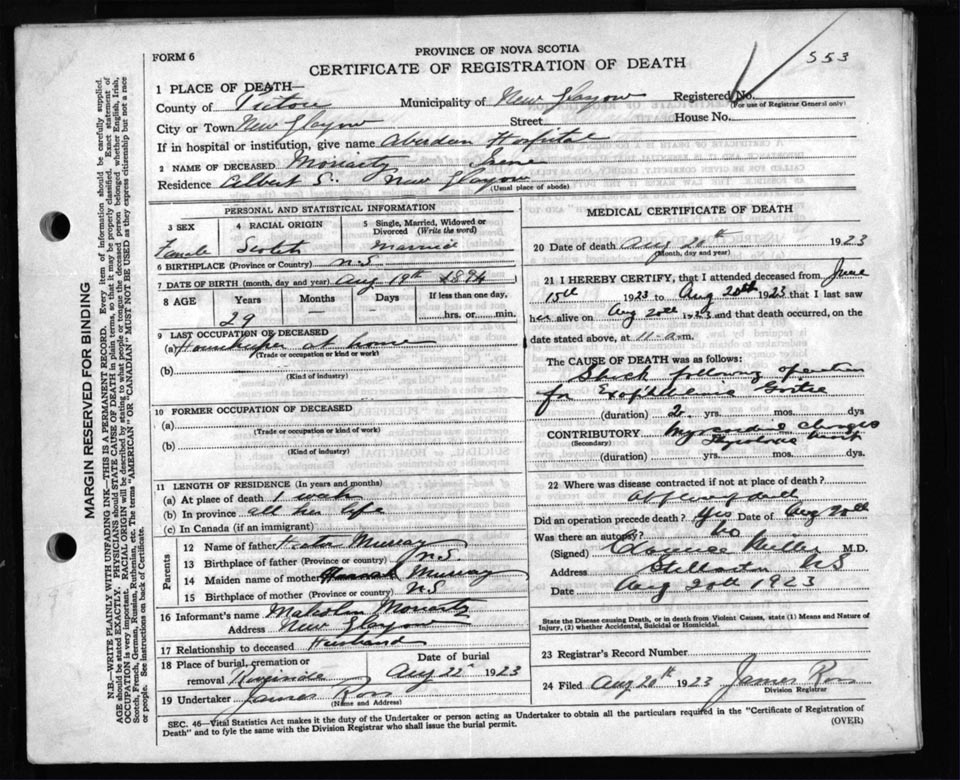 PROVINCE OF NOVA SCOTIA
FORM 6
CERTIFICATE OF REGISTRATION OF DEATH
553
1 PLACE OF DEATH
County of Pictou Municipality of New Glasgow Registered No.
(For use of Registrar General only)
City or Town New Glasgow Street House No.
If in hospital or institution, give name Aberdeen Hospital
2 NAME OF DECEASED Moriarty Irene
Residence Albert S. New Glasgow
(Usual place of abode)
PERSONAL AND STATISTICAL INFORMATION
3 SEX 4 RACIAL ORIGIN 5 Single, Married, Widowed or Divorced (Write the word)
Female Scotch Married
6 BIRTHPLACE (Province or Country) N.S.
7 DATE OF BIRTH (month, day and year) Aug 19th 1894
8 AGE Years Months Days If less than one day,
29 hrs. or min.
9 LAST OCCUPATION OF DECEASED
(a) Housekeeper at home
(Trade or occupation or kind or work)
(b)
(Kind of industry)
10 FORMER OCCUPATION OF DECEASED
(a)
(Trade or occupation or kind of work)
(b)
(Kind of industry)
11 LENGTH OF RESIDENCE (In years and months)
(a) At place of death 1 week
(b) In province all her life
(c) In Canada (if an immigrant)
Parents
12 Name of father Murray
13 Birthplace of father (Province or country) N.S.
14 Maiden name of mother Hannah Murray
15 Birthplace of mother (Province or country) N.S.
16 Informant's name Malcolm Moriarty
Address New Glasgow
17 Relationship to deceased Husband
18 Place of burial, cremation or Date of burial
removal Riverside Aug 22 1923
19 Undertaker James Ross
(Name and Address)
MEDICAL CERTIFICATE OF DEATH
20 Date of death Aug 20th 1923
(Month, day and year)
21 I HEREBY CERTIFY, that I attended deceased from June
15th 1923 to Aug 20th 1923 that I last saw
her alive on Aug 20th 1923 and that death occurred, on the
date stated above, at 11-a.m.
The CAUSE OF DEATH was as follows:
Shock following operation
for Exophthalmic Goitre
(duration) 2 yrs. mos. dys
CONTRIBUTORY Myocardial changes
(Secondary)
(duration) yrs. mos. dys.
22 Where was disease contracted if not at place of death?
Did an operation precede death? Yes Date of Aug 20th
Was there an autopsy? No
(Signed) Clarence Miller M.D.
Address Stellarton NS
Aug 20th 1923
State the Disease causing Death, or in death from Violent Causes, state (1) Means and Nature of
Injury, (2) whether Accidental, Suicidal or Homicidal.
23 Registrar's Record Number
24 Filed Aug 20th 1923 James Ross
Division Registrar
SEC. 46—Vital Statistics Act makes it the duty of the Undertaker or person acting as Undertaker to obtain all the particulars required in the "Certificate of Registration of
Death" and to fyle the same with the Division Registrar who shall issue the burial permit.
(OVER)
MARGIN RESERVED FOR BINDING
N.B.—WRITE PLAINLY WITH UNFADING INK—THIS IS A PERMANENT RECORD. Every item of information should be carefully supplied.
AGE should be stated EXACTLY. PHYSICIANS should STATE CAUSE OF DEATH in plain terms, so that it may be properly classified. Exact statement of
OCCUPATION is very important. RACIAL ORIGIN will be described by stating to what people or tongue the deceased person belonged whether English, Irish,
Scotch, French, German, Russian, Ruthenian, etc. The terms "AMERICAN" or "CANADIAN" MUST NOT BE USED as they express citizenship but not a race
or people. See instructions on back of Certificate.